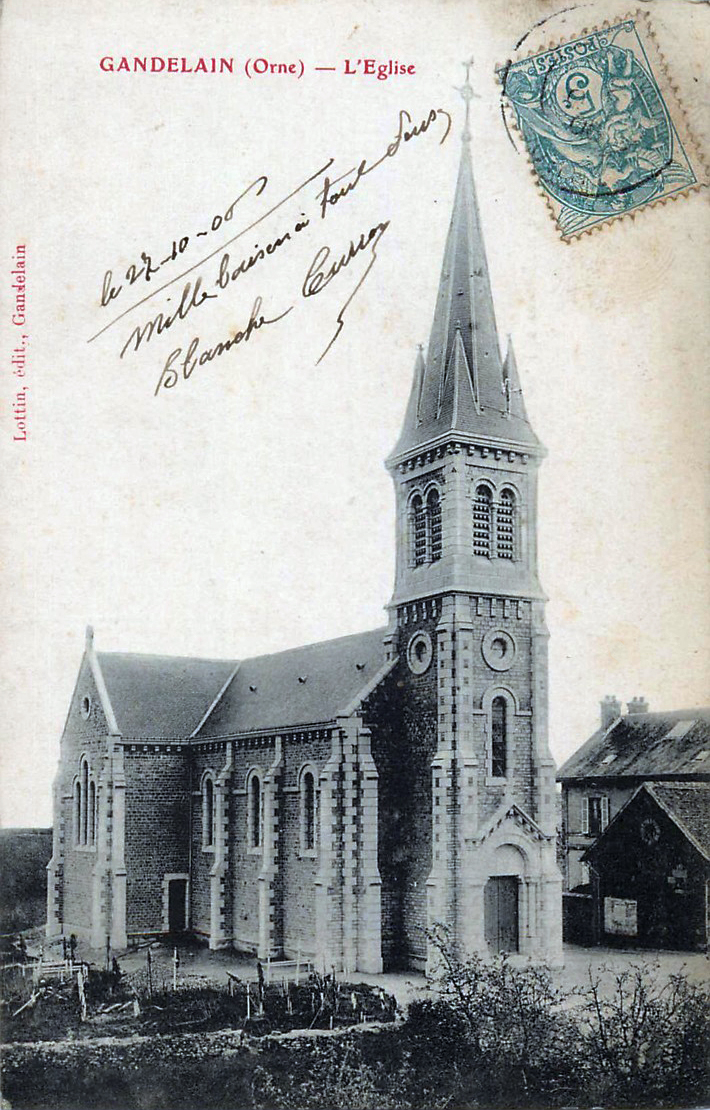 GANDELAIN (Orne) — L'Eglise
POSTES
5
le 27-10-06
Mille baisers à tous deux
Blanche
Lottin, édit., Gandelain